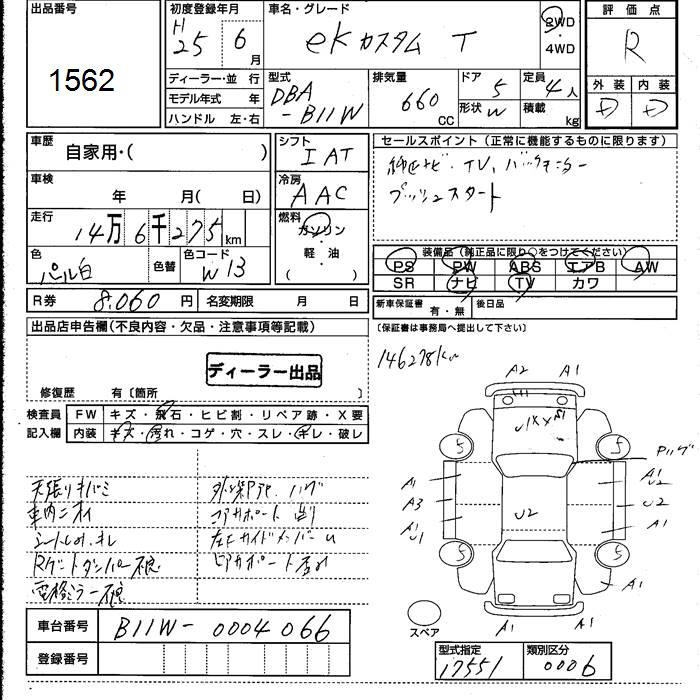 出品番号
1562
初度登録年月
H 25 6 月
車名・グレード
eKカスタム T
2WD
・
4WD
評価点
R
ディーラー・並 行
モデル年式 年
ハンドル 左・右
型式
DBA
-B11W
排気量
660 CC
ドア 5
形状 W
定員 4人
積載 kg
外装 内装
D D
車歴
自家用・( )
シフト
IAT
セールスポイント(正常に機能するものに限ります)
純正ナビ・TV、バックモニター
プッシュスタート
車検
年 月( 日)
冷房
AAC
走行
14万6千275km
燃料
ガソリン
・
軽・油
( )
色
パール白
色替
色コード
W13
装備品(純正品に限り○をつけてください)
PS PW ABS エアB AW
SR ナビ TV カワ
R券 8.060 円 名変期限 月 日
新車保証書 有・無 後日品
(保証書は事務局へ提出して下さい)
出品店申告欄(不良内容・欠品・注意事項等記載)
ディーラー出品
修復歴 有〔箇所 〕
146278km
検査員
記入欄
FW キズ・飛石・ヒビ割・リペア跡・X要
内装 キズ・汚れ・コゲ・穴・スレ・キレ・破レ
天張りキバミ
車内ニオイ
シートしめ、キレ
Rゲートダンパー不良
電格ミラー不良
コアサポート
左Fサイドメンバー
リアサポート
A2 A1
5 5
A1
A3
A1
U1
U2
A1
U2
U2
A1
5 5
A1
A1 A1
スペア
車台番号 B11W-0004066
登録番号
型式指定
17551
類別区分
0006